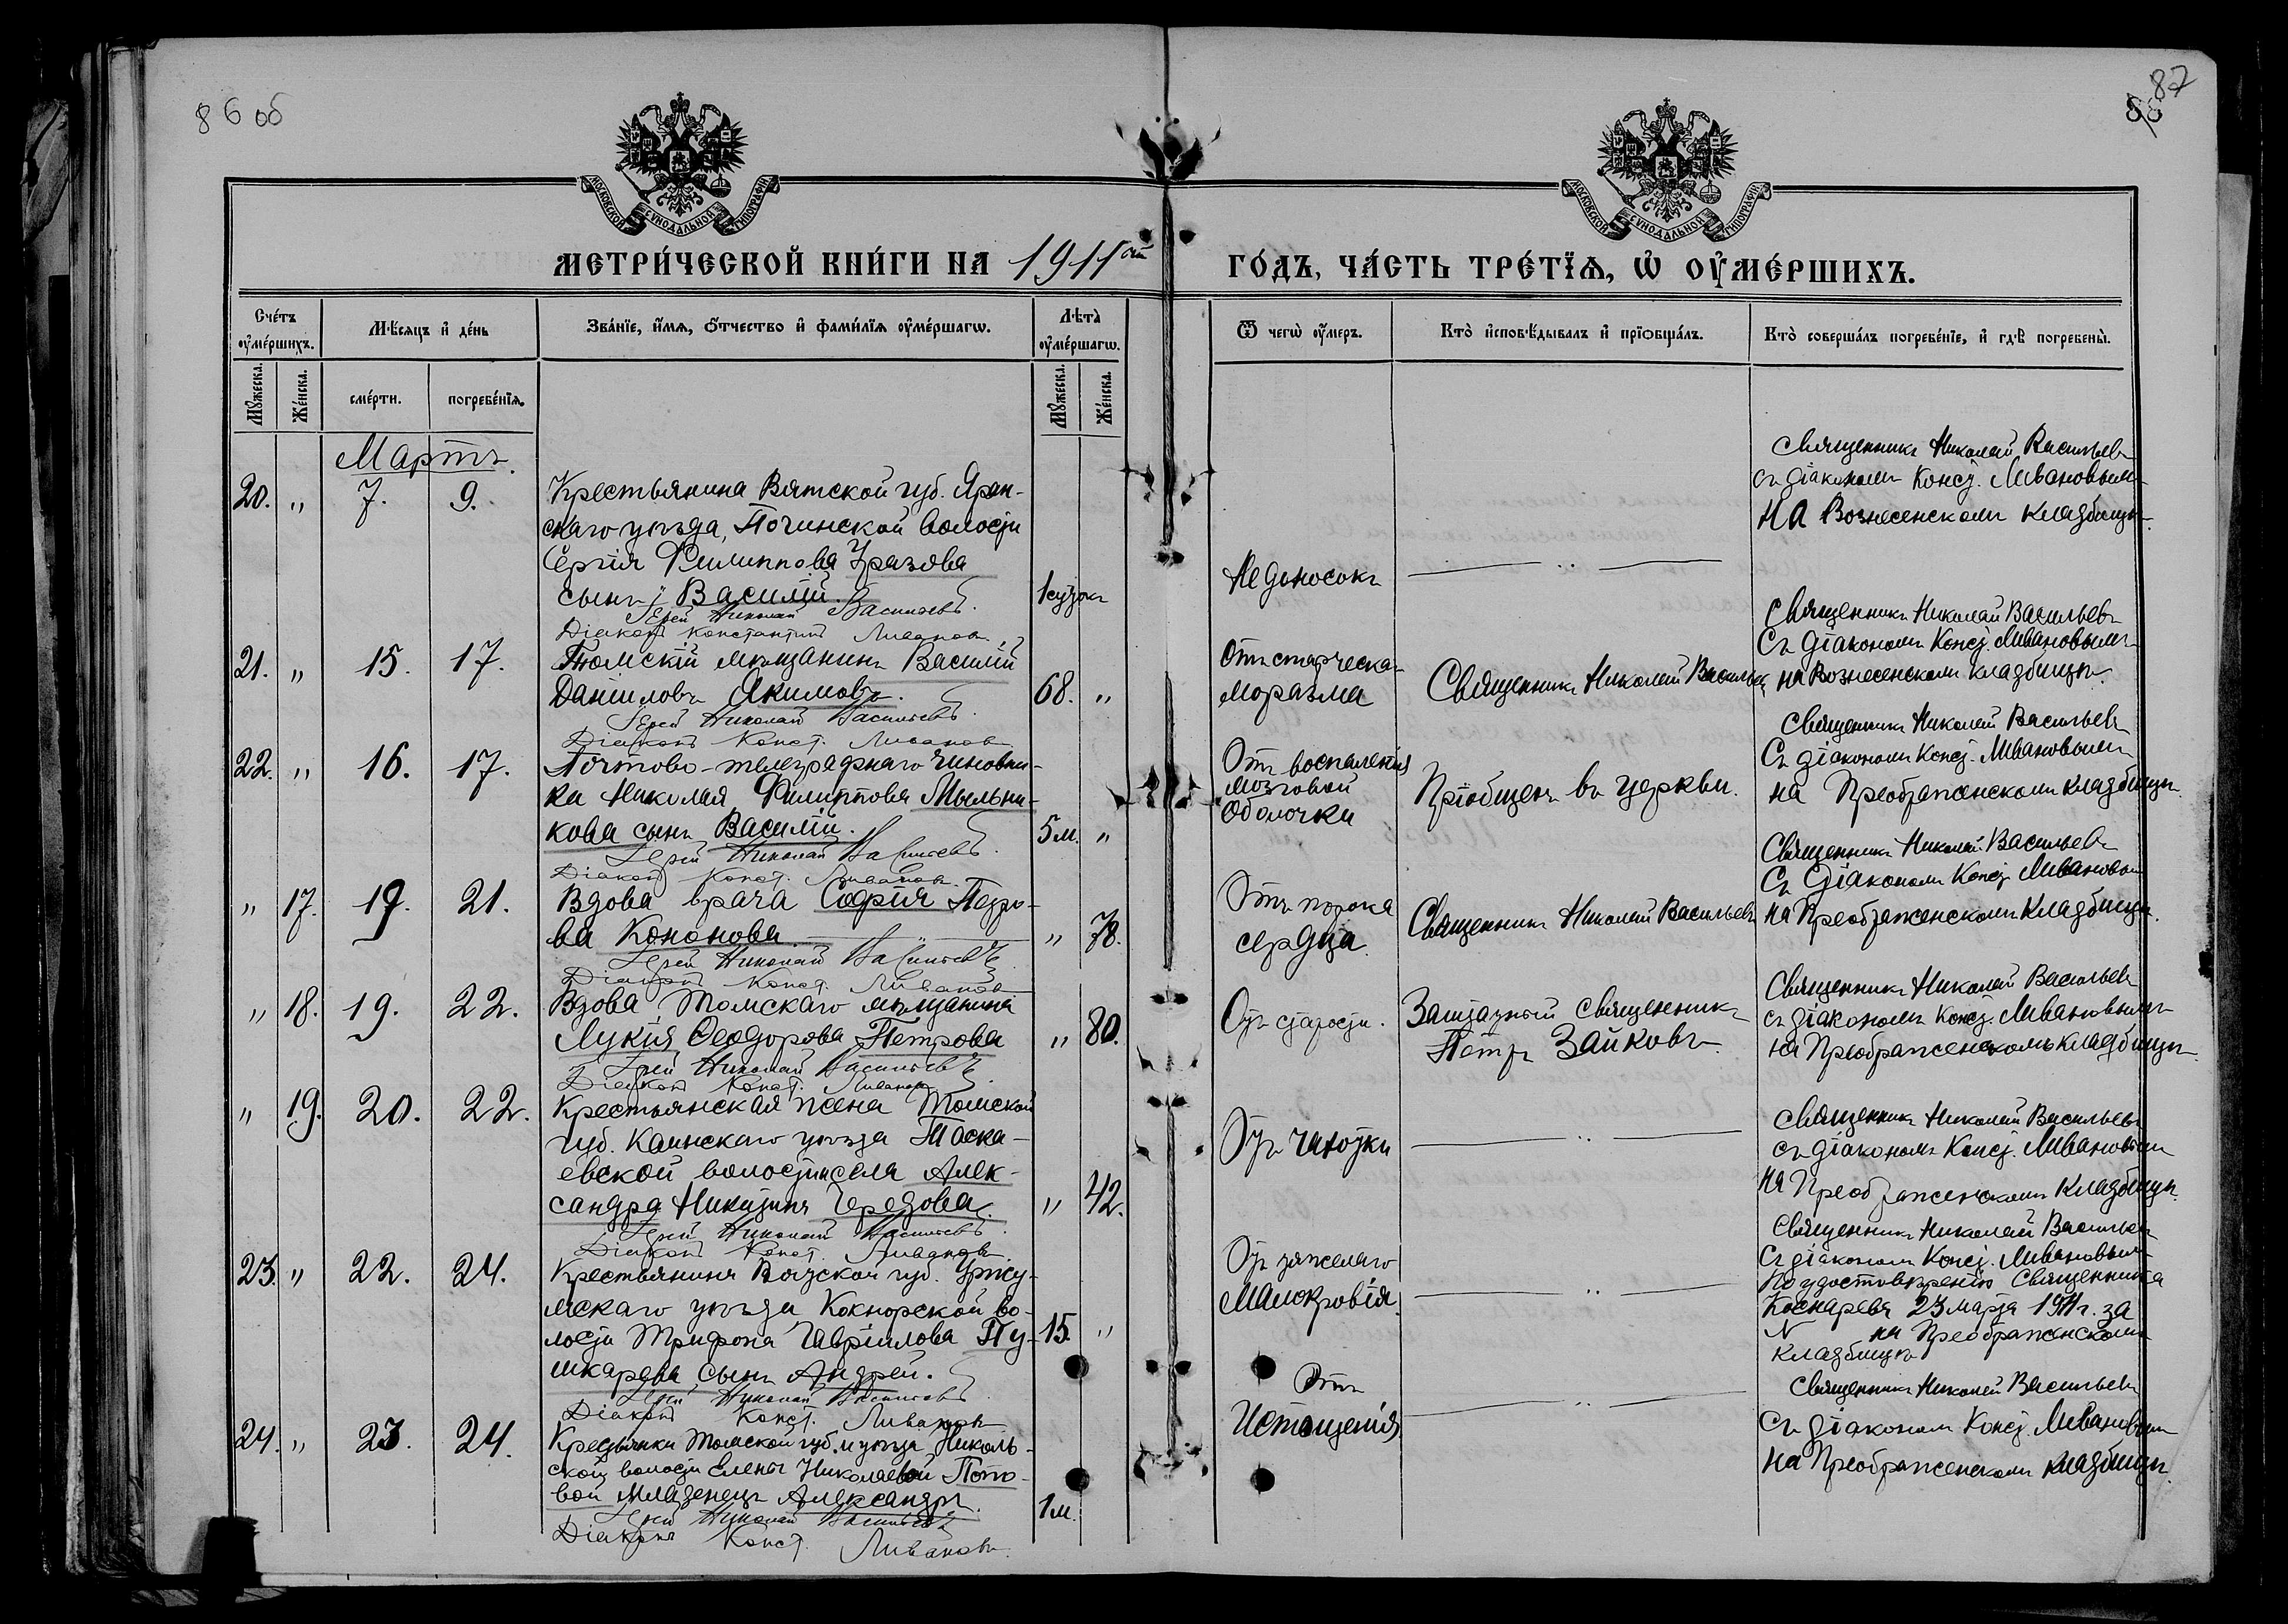 86 об
87
МОСКОВСКОЙ СѴНОДАЛЬНОЙ ТИПОГРАФІИ
МОСКОВСКОЙ СѴНОДАЛЬНОЙ ТИПОГРАФІИ
МЕТРИ́ЧЕСКОЙ КНИ́ГИ НА 1911ый ГО́ДЪ, ЧА́СТЬ ТРЕ́ТІѦ, Ѡ ОУ҆МЕ́РШИХЪ.
Сче́тъ оу҆ме́ршихъ.
Мѣ́сяцъ и҆ де́нь
Зва́нїе, и҆́мѧ, ѻ҆́тчество и҆ фами́лїѧ оу҆ме́ршагѡ.
Лѣта̀ оу҆ме́ршагѡ.
Ѿ чегѡ̀ оу҆́меръ.
Кто̀ и҆сповѣ́дывалъ и҆ прїѡбща́лъ.
Кто̀ соверша́лъ погребе́нїе, и҆ гдѣ̀ погребены̀.
Мꙋжеска.
Же́нска.
сме́рти.
погребе́нїѧ.
Мꙋжеска.
Же́нска.
Мартъ.
20. " 7. 9.
Крестьянина Вятской губ. Яран-
скаго уѣзда, Починской волости
Сергія Филиппова Уразова
сынъ Василій.
Іерей Николай Васильевъ.
Діаконъ Константинъ Ливановъ.
1 сутокъ
Недоносокъ
Священникъ Николай Васильевъ
съ діакономъ Конст. Ливановымъ
на Вознесенскомъ кладбищѣ.
21. " 15. 17.
Томскій мѣщанинъ Василій
Даніиловъ Якимовъ.
Іерей Николай Васильевъ.
Діаконъ Конст. Ливановъ
68. "
Отъ старческа-
маразма
Священникъ Николай Васильевъ
Священникъ Николай Васильевъ
Съ діакономъ Конст. Ливановымъ
на Вознесенскомъ кладбищѣ.
22. " 16. 17.
Почтово-телеграфнаго чиновни-
ка Николая Филиппова Мыльни-
кова сынъ Василій.
Іерей Николай Васильевъ.
Діаконъ Конст. Ливановъ.
5 м. "
Отъ воспаленія
мозговой
оболочки
Пріобщенъ въ церкви.
Священникъ Николай Васильевъ
Съ діакономъ Конст. Ливановымъ
на Преображенскомъ кладбищѣ.
" 17. 19. 21.
Вдова врача Софія Петро-
ва Кононова.
Іерей Николай Васильевъ
Діаконъ Конст. Ливановъ
" 78.
Отъ порока
сердца.
Священникъ Николай Васильевъ
Священникъ Николай Васильевъ
Съ Діакономъ Конст Ливановым
на Преображенскомъ Кладбищѣ.
" 18. 19. 22.
Вдова Томскаго мѣщанина
Лукія Ѳеодорова Петрова
Іерей Николай Васильевъ
Діаконъ Конст. Ливановъ
" 80.
Отъ старости.
Заштатный священникъ
Петръ Зайковъ.
Священникъ Николай Васильевъ
съ діакономъ Конст. Ливановымъ
на Преображенскомъ кладбищѣ.
" 19. 20. 22.
Крестьянская жена Томской
губ. Каинскаго уѣзда
евской волости села Алек-
сандра Никитина Чередова.
Іерей Николай Васильевъ
Діаконъ Конст. Ливановъ.
" 42.
Отъ чахотки
Священникъ Николай Васильевъ
съ діакономъ Конст. Ливановым
на Преображенскомъ Кладбищѣ.
23. " 22. 24.
Крестьянина Вятской губ. Уржу-
мскаго уѣзда Кокнорской во-
лости Трифона Гавріилова Пу-
шкарева сынъ Андрей.
Іерей Николай Васильевъ
Діаконъ Конст. Ливановъ
15. "
Отъ тяжелаго
малокровія.
Священникъ Николай Васильевъ
Съ діакономъ Конст. Ливановымъ
По удостовѣренію Священника
Коснарева 23 марта 1911 г. за
N на Преображенскомъ
кладбищѣ
24. " 23. 24.
Крестьянки Томской губ. и уѣзда Николь-
ской волости Елены Николаевой Попо-
вой младенецъ Александръ.
Іерей Николай Васильевъ
Діаконъ Конст. Ливановъ.
1 м.
Отъ
Истощенія
Священникъ Николай Васильевъ
Съ діакономъ Конст. Ливановым
на Преображенскомъ кладбищѣ.